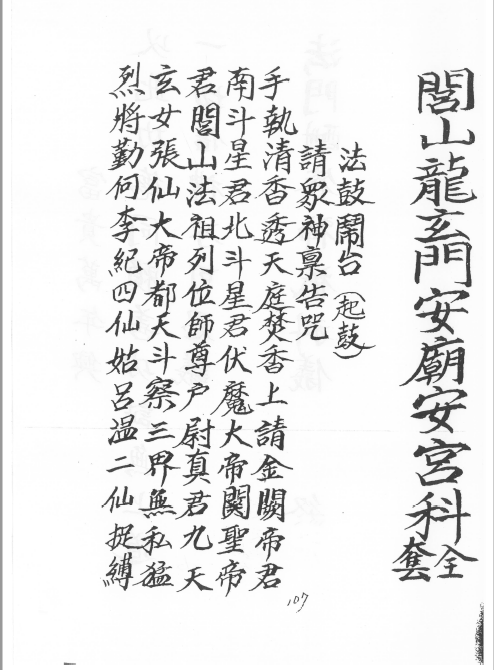 閭山龍玄門安廟安宮科全套
法鼓鬧台(起鼓)
請眾神稟告咒
手執清香透天庭焚香上請金闕帝君
南斗星君北斗星君伏魔大帝関聖帝
君閭山法祖列位師尊户尉真君九天
玄女張仙大帝都天斗察三界無私猛
烈將勤何李紀四仙姑呂温二仙捉縛
107